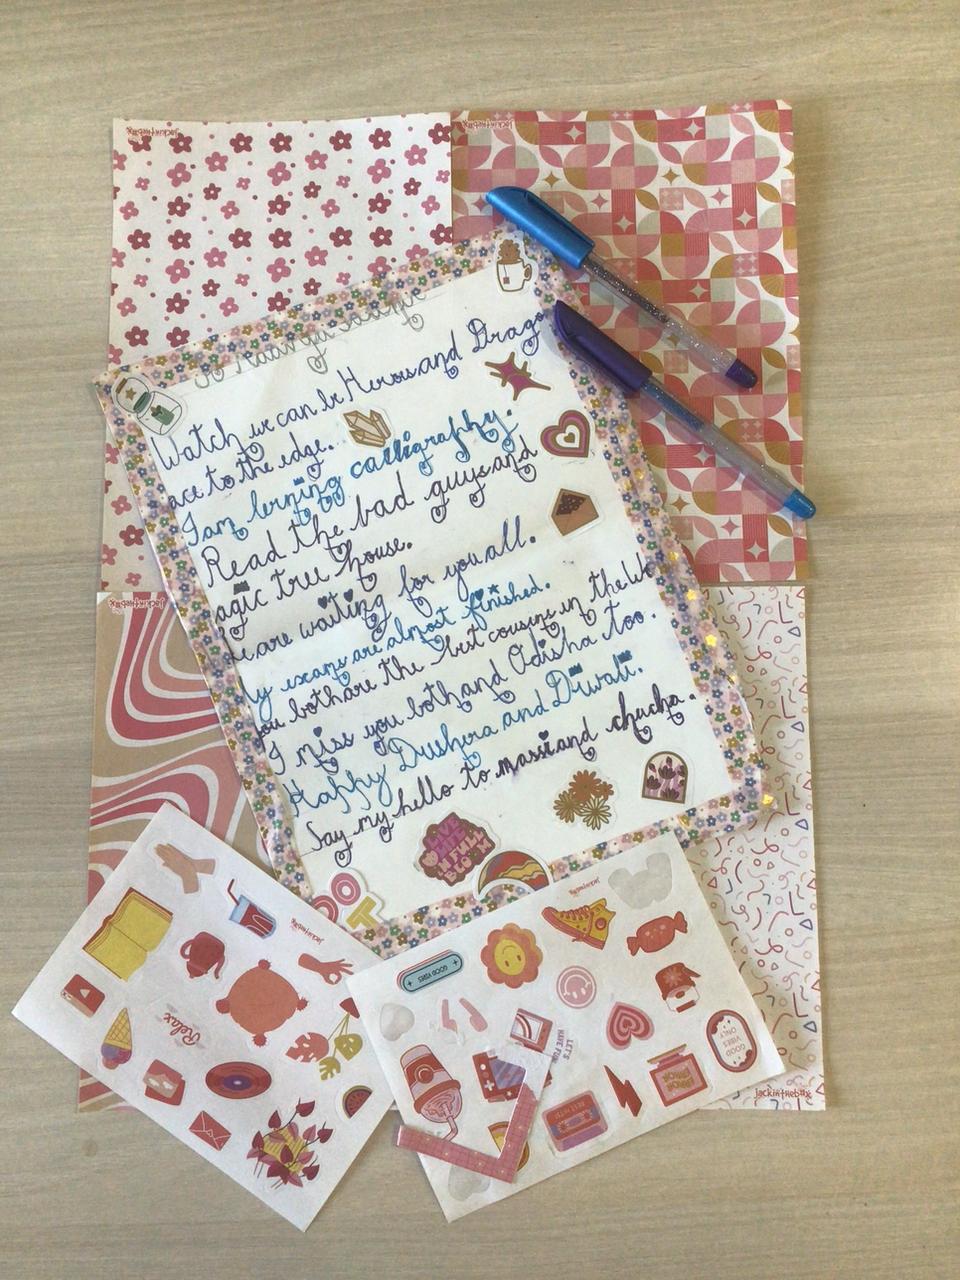 jackinthebox
jackinthebox
Watch we can be Heros and Drago
ace to the edge.
I am lerning calligraphy.
Read the bad guys and
agic tree house.
e are waiting for you all.
y exams are almost finished.
you both are the best cousins in the
I miss you both and Odisha too.
Happy Dushera and Diwali.
Say my hello to massi and chacha.
jackinthebox
LIVE
LIFE
IN FULL
BLOOM
jackinthebox
Relax
jackinthebox
GOOD VIBES
LET'S
HAVE FUN
GOOD
VIBES
ONLY
jackinthebox